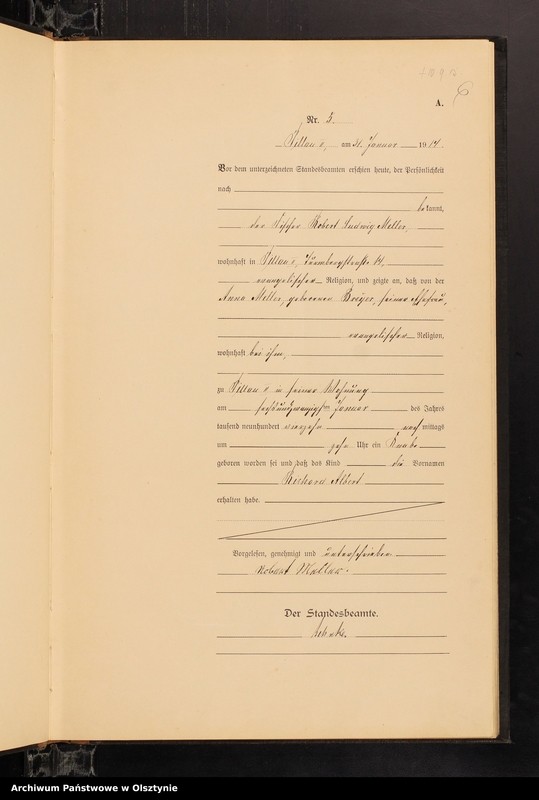 6
A.
Nr. 3.
Pillau, am 31. Januar 1914.
Vor dem unterzeichneten Standesbeamten erschien heute, der Persönlichkeit
nach
bekannt,
der Fischer Robert Ludwig Meller,
wohnhaft in Pillau
evangelischer Religion, und zeigte an, daß von der
Anna Meller, geborenen seiner Ehefrau,
evangelischer Religion,
wohnhaft bei ihm,
zu Pillau in seiner Wohnung
am sechsundzwanzigsten Januar des Jahres
tausend neunhundert vierzehn nachmittags
um zehn Uhr ein Knabe
geboren worden sei und daß das Kind die Vornamen
Richard Albert
erhalten habe.
Vorgelesen, genehmigt und unterschrieben
Robert Meller.
Der Standesbeamte.
Archiwum Państwowe w Olsztynie